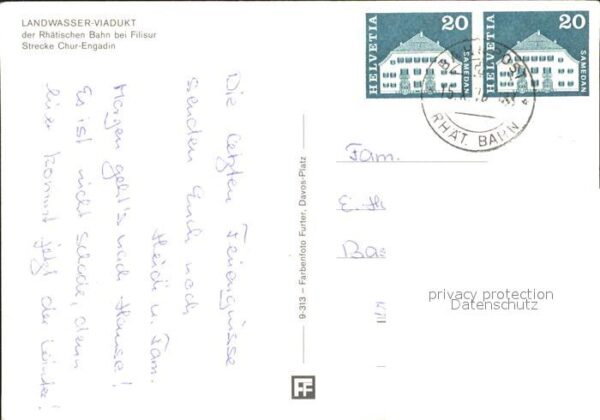 LANDWASSER-VIADUKT
der Rhätischen Bahn bei Filisur
Strecke Chur-Engadin
Die letzten Feriengrüsse
senden Euch noch
Heidi u. Fam.
Morgen geht's nach Hause!
Es ist nicht schade, denn
hier kommt jetzt der Winter!
9-313 – Farbenfoto Furter, Davos-Platz
FF
HELVETIA
20
SAMEDAN
HELVETIA
20
SAMEDAN
BAHNPOST
RHÄT. BAHN
Fam.
E. H
Bas
privacy protection
Datenschutz